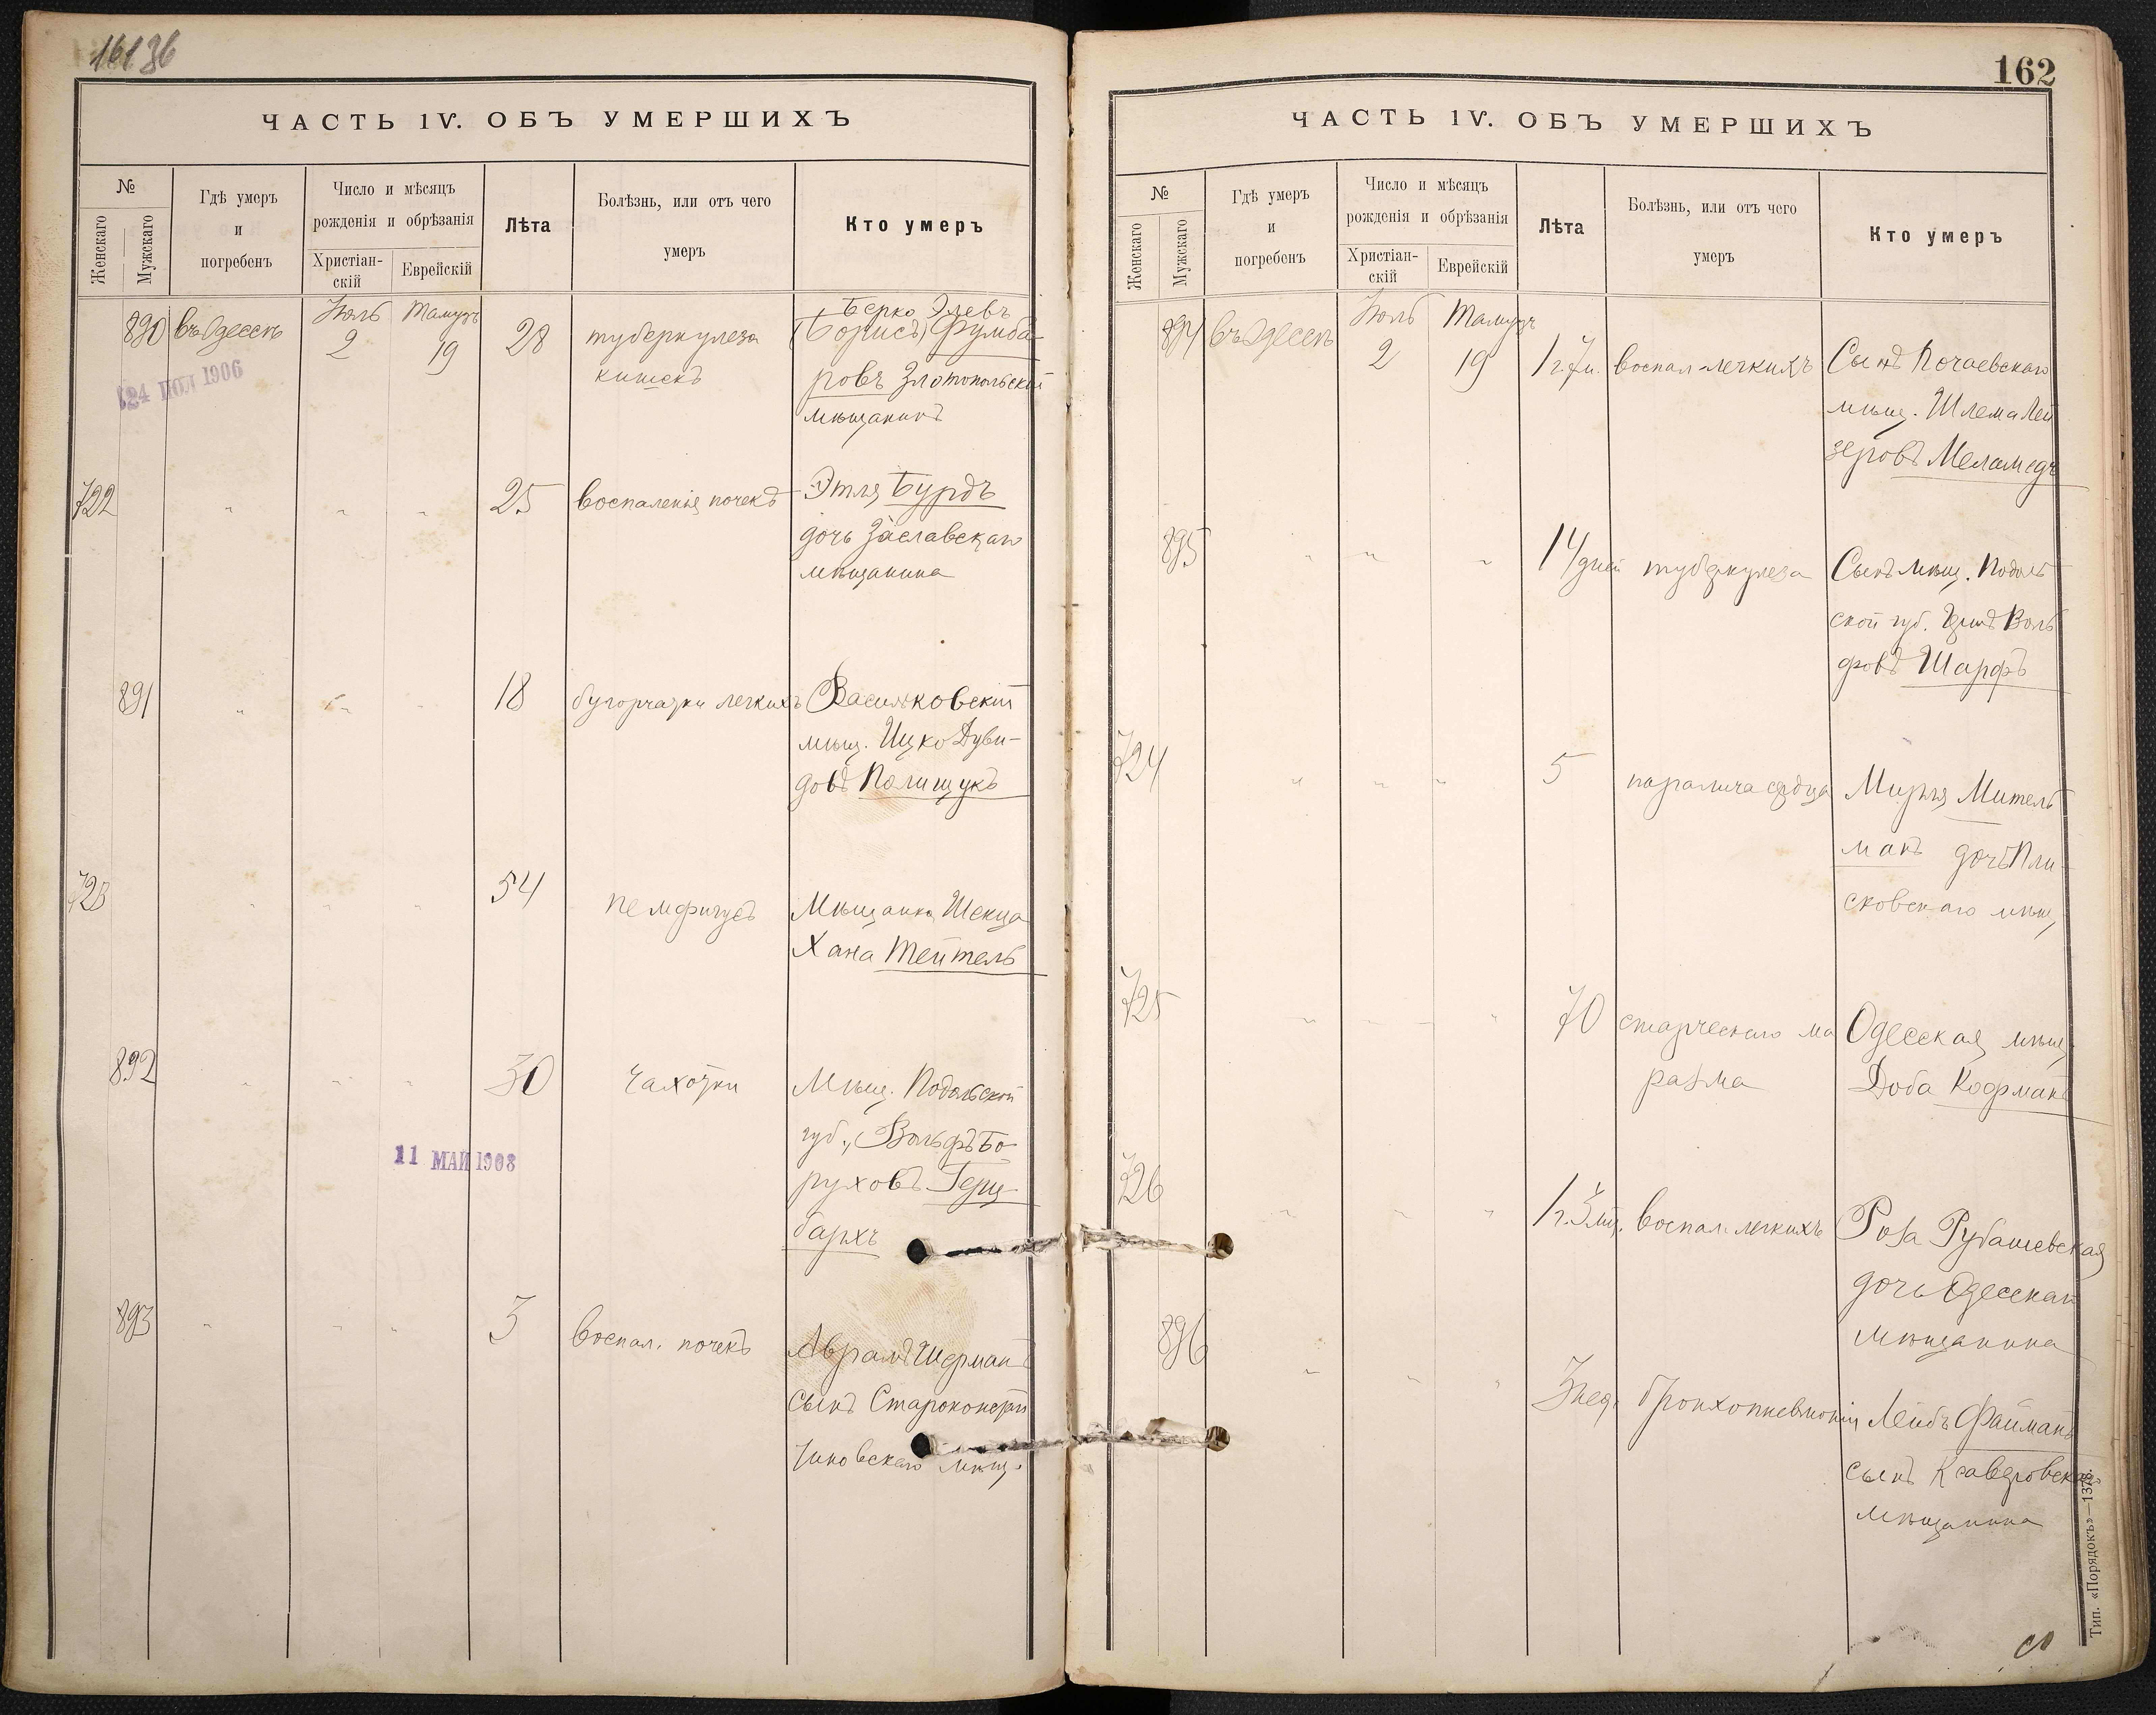 16136
ЧАСТЬ IV. ОБЪ УМЕРШИХЪ
№
Женскаго
Мужскаго
Гдѣ умеръ
и
погребенъ
Число и мѣсяцъ
рожденія и обрѣзанія
Христіан-
скій
Еврейскій
Лѣта
Болѣзнь, или отъ чего
умеръ
Кто умеръ
890 въ Одессѣ Іюль 2 Тамузъ 19 28 туберкулеза
кишекъ
Берко Элевъ
(Борисъ) Румба-
ровъ Златопольскій
мѣщанинъ
24 ІЮЛ 1906
722 " " " 25 воспаленія почекъ Этля Бурдъ
дочь Заславскаго
мѣщанина
891 " " " 18 бугорчатки легкихъ Васильковскій
мѣщ. Ицко Дуви-
довъ Полищукъ
723 " " " 54 пемфигусъ Мѣщанка
Хана Тейтель
892 " " " 30 чахотки Мѣщ. Подольской
губ., Вольфъ Бо-
руховъ Герц-
бархъ
11 МАЙ 1908
893 " " " 3 воспал. почекъ Аврамъ Шерманъ
сынъ Староконстан
тиновскаго мѣщ.
162
ЧАСТЬ IV. ОБЪ УМЕРШИХЪ
№
Женскаго
Мужскаго
Гдѣ умеръ
и
погребенъ
Число и мѣсяцъ
рожденія и обрѣзанія
Христіан-
скій
Еврейскій
Лѣта
Болѣзнь, или отъ чего
умеръ
Кто умеръ
894 въ Одессѣ Іюль 2 Тамузъ 19 1 г. 7 м. воспал. легкихъ Сынъ Почаевскаго
мѣщ. Шлема Лей
зеровъ Меламедъ
895 " " " 14 дней туберкулеза Сынъ мѣщ. Подоль
ской губ. Воль

фовъ Шарфъ
724 " " " 5 паралича сердца Мирля Митель
манъ дочь Пли-
сковскаго мѣщ.
725 " " " 70 старческаго ма
разма
Одесская мѣщ.
Доба Кофманъ
726 " " " 1 г. 3 мѣс. воспал. легкихъ Роза Рубашевская
дочь Одесскаго
мѣщанина
896 " " " 3 нед. бронхопневмоніи Лейбъ Файманъ
сынъ Ксаверовскаго
мѣщанина
Тип. «Порядокъ»—1378.